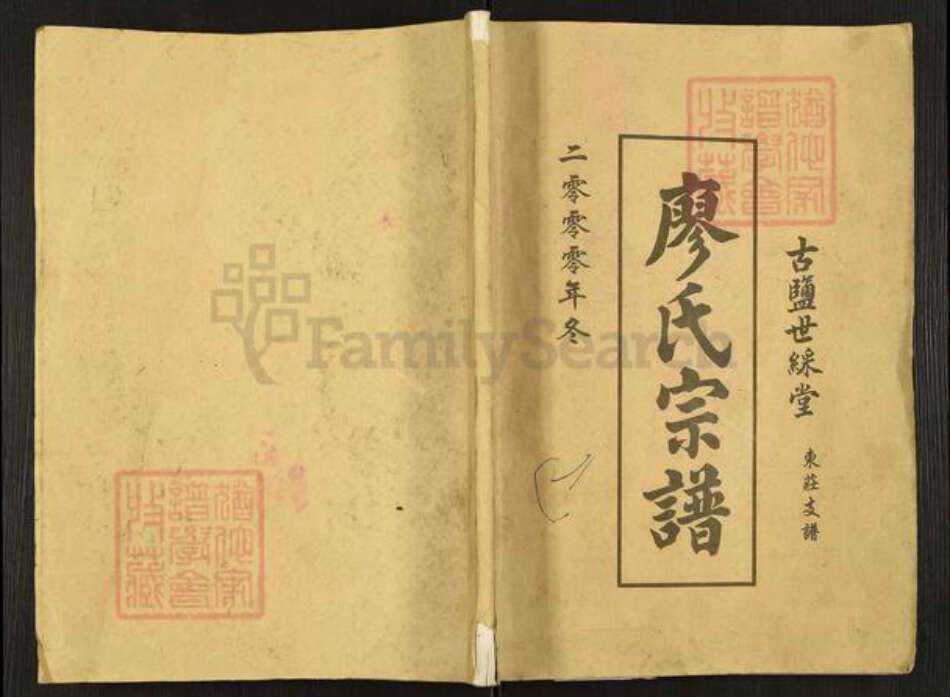 古鹽世綵堂
東莊支譜
廖氏宗譜
二零零零年冬
猶他家
譜學會
收藏
猶他家
譜學會
收藏
FamilySearch